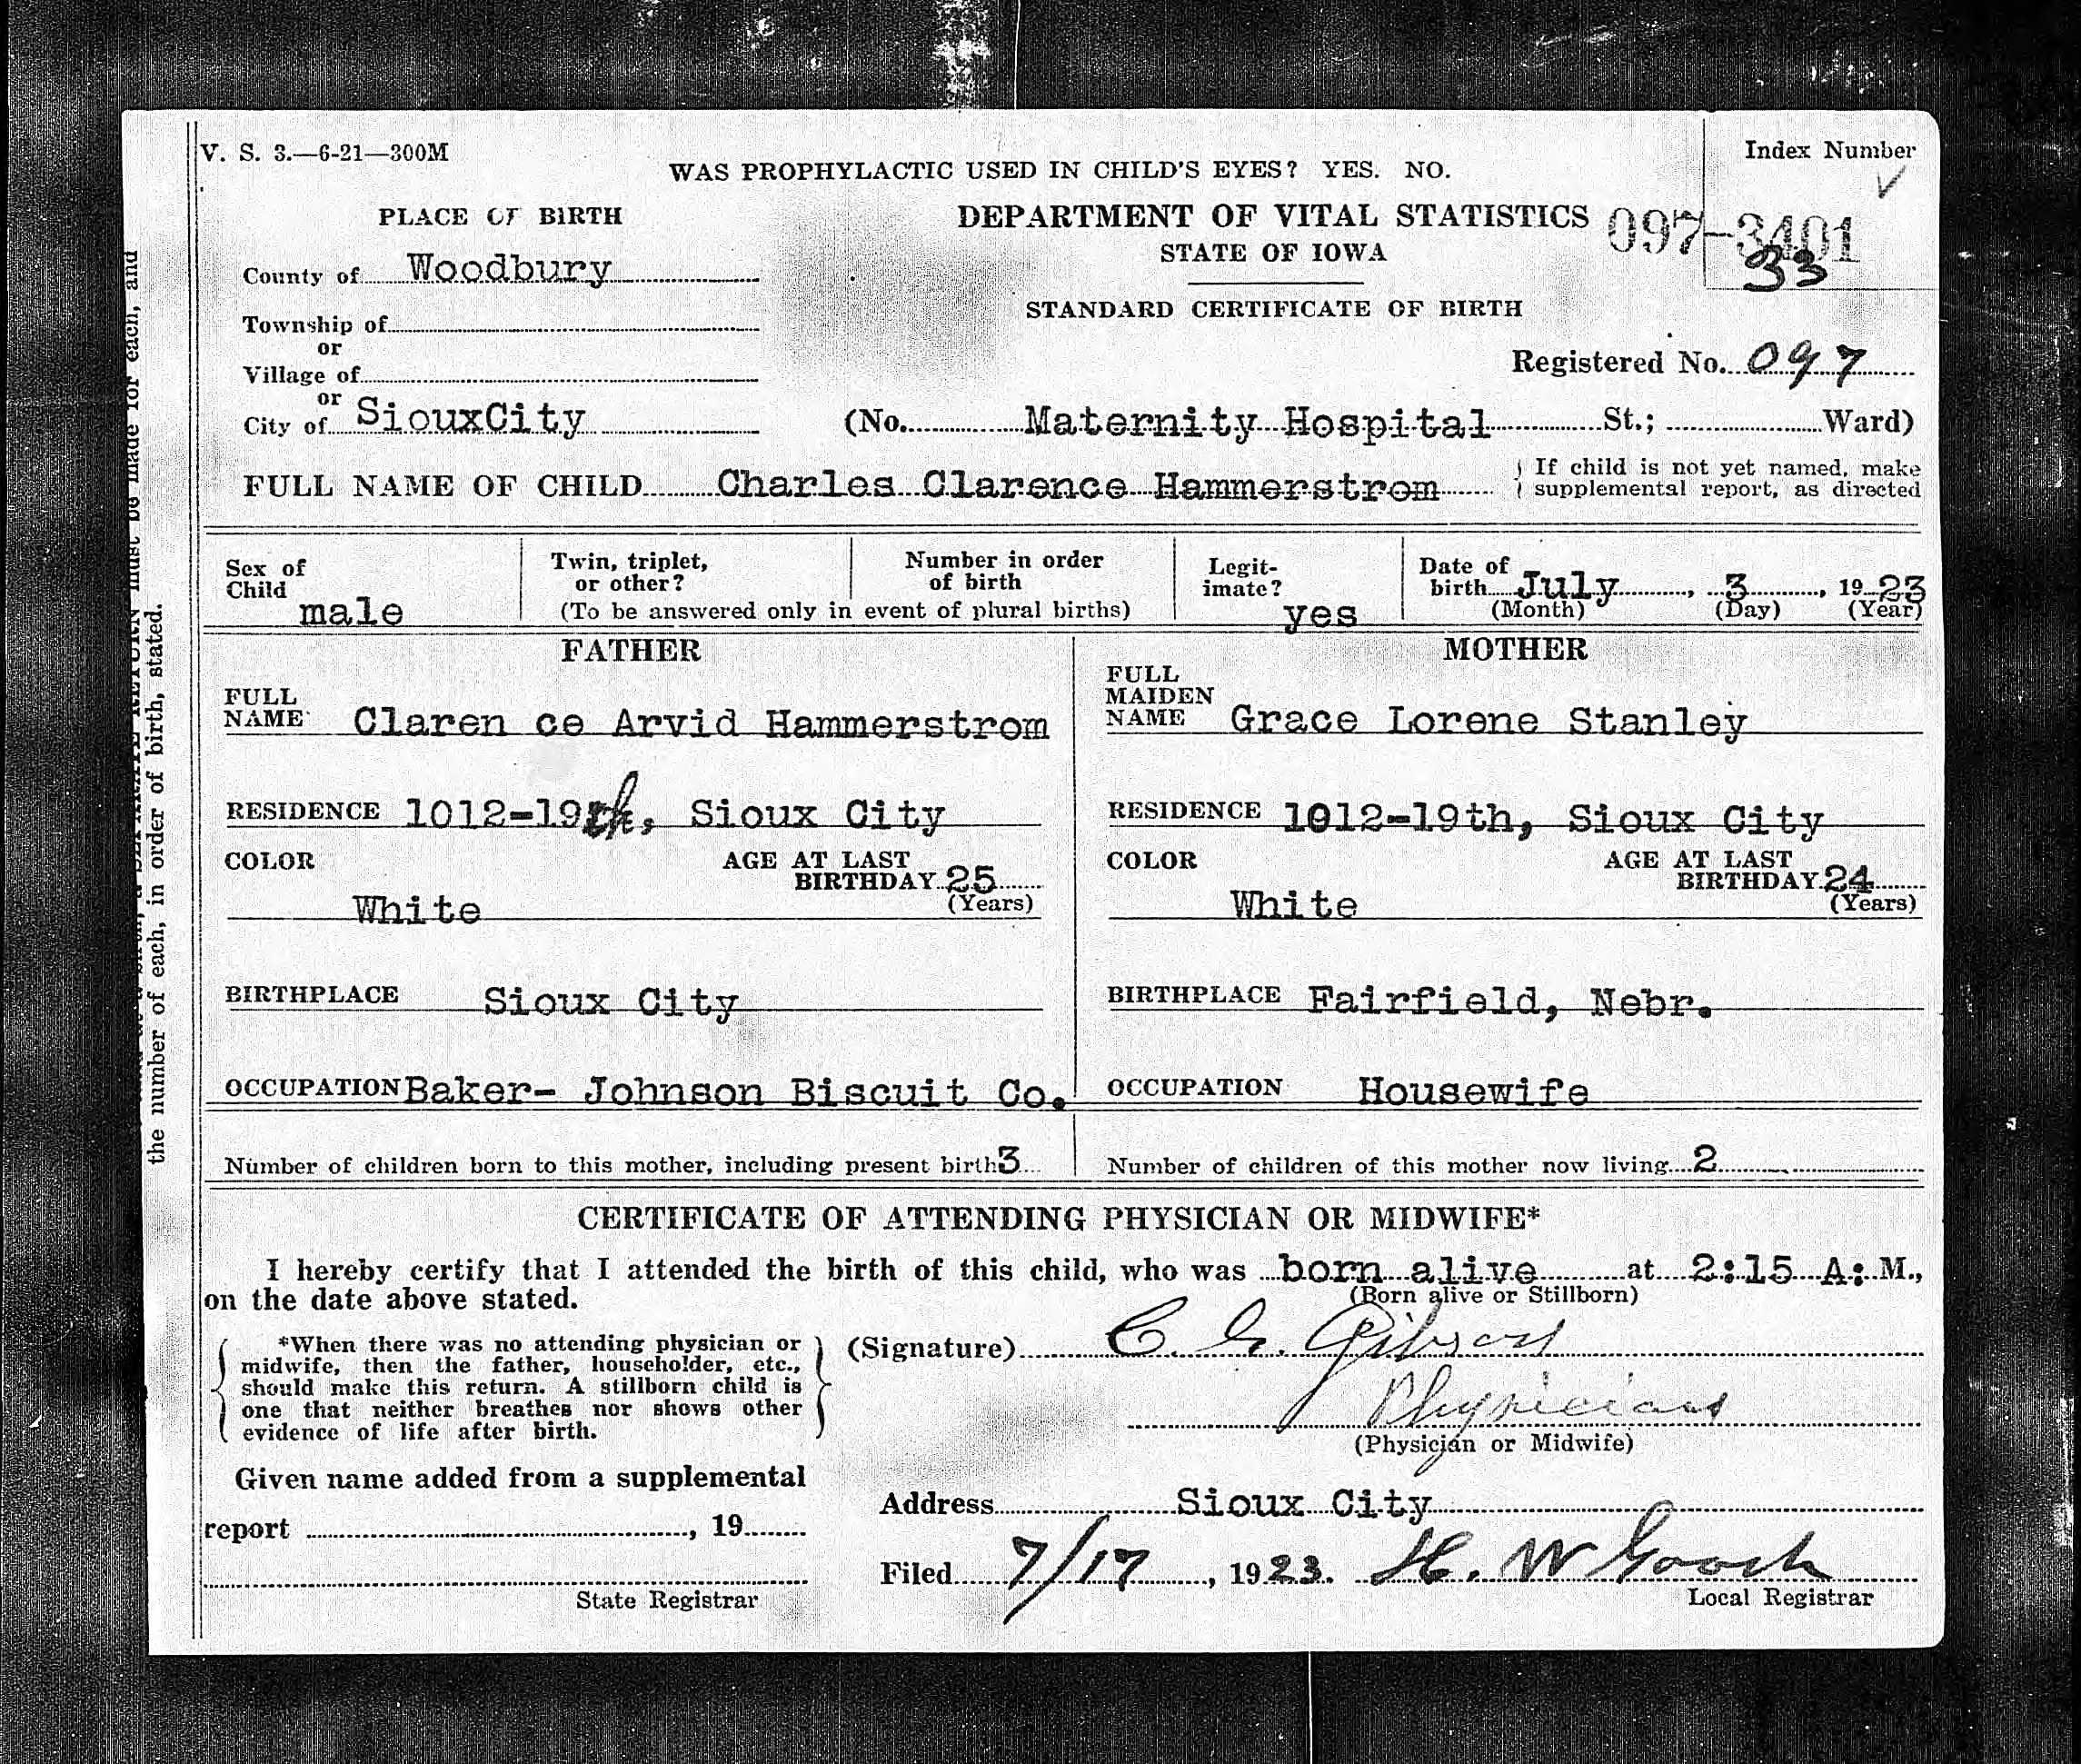 V. S. 3.—6-21—300M
WAS PROPHYLACTIC USED IN CHILD'S EYES? YES. NO.
Index Number
PLACE OF BIRTH
DEPARTMENT OF VITAL STATISTICS
STATE OF IOWA
097-3401
33
County of Woodbury
STANDARD CERTIFICATE OF BIRTH
Township of
or
Village of
Registered No. 097
or
City of SiouxCity (No. Maternity Hospital St.; Ward)
FULL NAME OF CHILD Charles Clarence Hammerstrom
If child is not yet named, make
supplemental report, as directed
Sex of
Child
male
Twin, triplet,
or other?
Number in order
of birth
(To be answered only in event of plural births)
Legit-
imate?
yes
Date of
birth July, 3, 1923
(Month) (Day) (Year)
FATHER
FULL
NAME Claren ce Arvid Hammerstrom
RESIDENCE 1012-19th, Sioux City
COLOR
White
AGE AT LAST
BIRTHDAY 25
(Years)
BIRTHPLACE Sioux City
OCCUPATION Baker- Johnson Biscuit Co.
MOTHER
FULL
MAIDEN
NAME Grace Lorene Stanley
RESIDENCE 1012-19th, Sioux City
COLOR
White
AGE AT LAST
BIRTHDAY 24
(Years)
BIRTHPLACE Fairfield, Nebr.
OCCUPATION Housewife
Number of children born to this mother, including present birth 3
Number of children of this mother now living 2
CERTIFICATE OF ATTENDING PHYSICIAN OR MIDWIFE*
I hereby certify that I attended the birth of this child, who was born alive at 2:15 A: M.,
(Born alive or Stillborn)
on the date above stated.
*When there was no attending physician or
midwife, then the father, householder, etc.,
should make this return. A stillborn child is
one that neither breathes nor shows other
evidence of life after birth.
(Signature) C. G. Gibson
Physician
(Physician or Midwife)
Given name added from a supplemental
report , 19
State Registrar
Address Sioux City
Filed 7/17, 1923. H. W Gooch
Local Registrar
must be made for each, and
the number of each, in order of birth, stated.